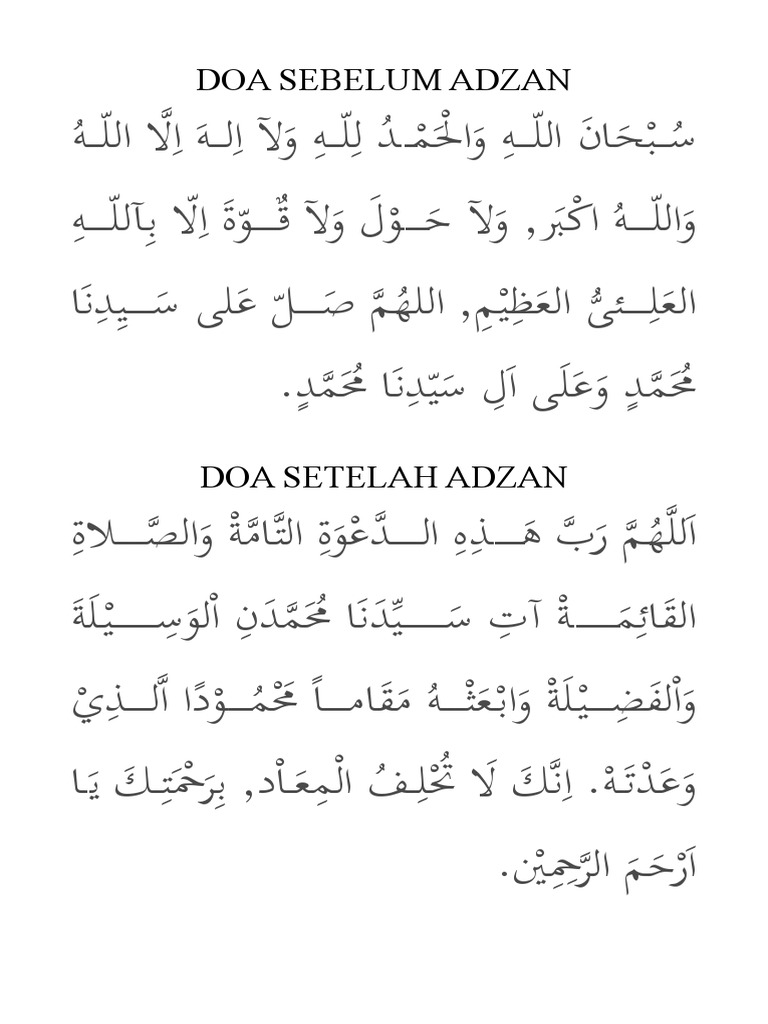 DOA SEBELUM ADZAN
سُبْحَانَ اللّهِ وَالْحَمْدُ لِلّهِ وَلآ اِلهَ اِلَّا اللّهُ
وَاللّهُ اكْبَر, وَلآ حَوْلَ وَلآ قُوّةَ اِلّا بِآللّهِ
العَلِئىُّ العَظِيْمِ, اللهُمَّ صَلّ عَلى سَيِدِنَا
مُحَمَّدٍ وَعَلَى اَلِ سَيّدِنَا مُحَمَّدٍ.
DOA SETELAH ADZAN
اَللَّهُمَّ رَبَّ هَذِهِ الدَّعْوَةِ التَّامَّةْ وَالصَّلاةِ
القَائِمَةْ آتِ سَيِّدَنَا مُحَمَّدَنِ اْلوَسِيْلَةَ
وَاْلفَضِيْلَةْ وَابْعَثْهُ مَقَاماً مَحْمُوْدًا اَّلذِيْ
وَعَدْتَهْ. اِنَّكَ لَا تُحْلِفُ الْمِعَاْد, بِرَحْمَتِكَ يَا
اَرْحَمَ الرَّحِمِيْن.